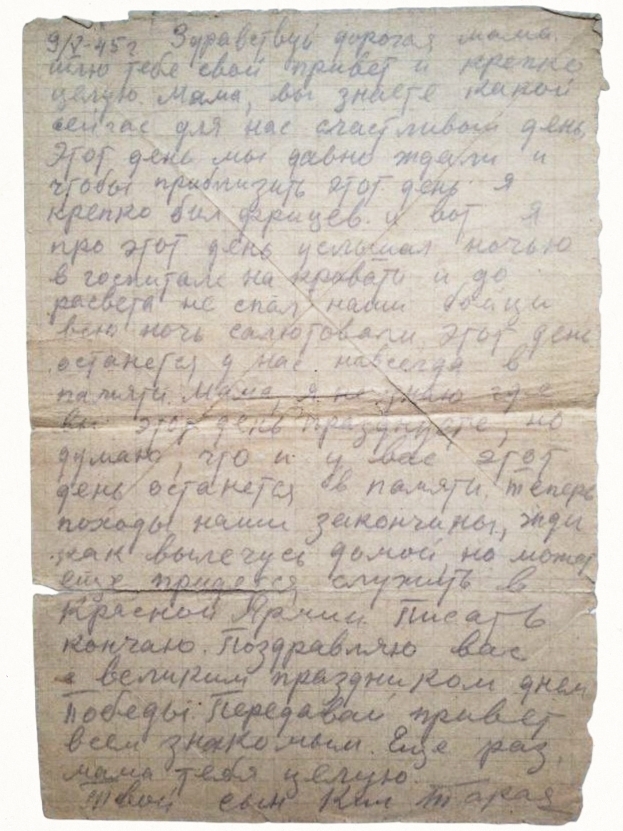 9/V-45г Здравствуй дорогая мама
шлю тебе свой привет и крепко
целую. Мама, вы знаете какой
сейчас для нас счастливый день,
этот день мы давно ждали и
чтобы приблизить этот день я
крепко бил фрицев. и вот я
про этот день услышал ночью
в госпитале на кровати и до
расвета не спал, наши бойци
всю ночь салютовали, этот день
останется у нас навсегда в
памяти. Мама, я не знаю где
вы этот день празднуете, но
думаю, что и у вас этот
день останется в памяти. Теперь
походы наши закончины, жди
как вылечусь домой но может
еще придется служить в
Красной Армии. Писать
кончаю. Поздравляю вас
с великим праздником днем
Победы. Передавай привет
всем знакомым. Еще раз,
мама тебя целую.
Твой сын Ким Тарая